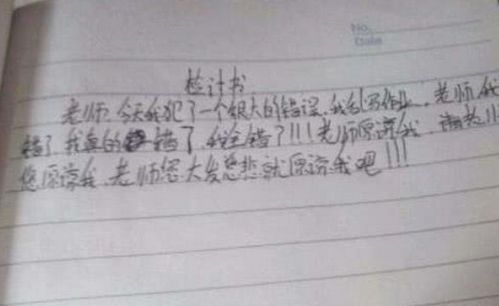 No.
Date
检计书
老师 今天我犯了一个很大的错误，我乱写作业，老师 我
错了 我真的 错了，我全错了!!!老师原谅我，谢
您原谅我，老师您大发慈悲就原谅我吧!!!